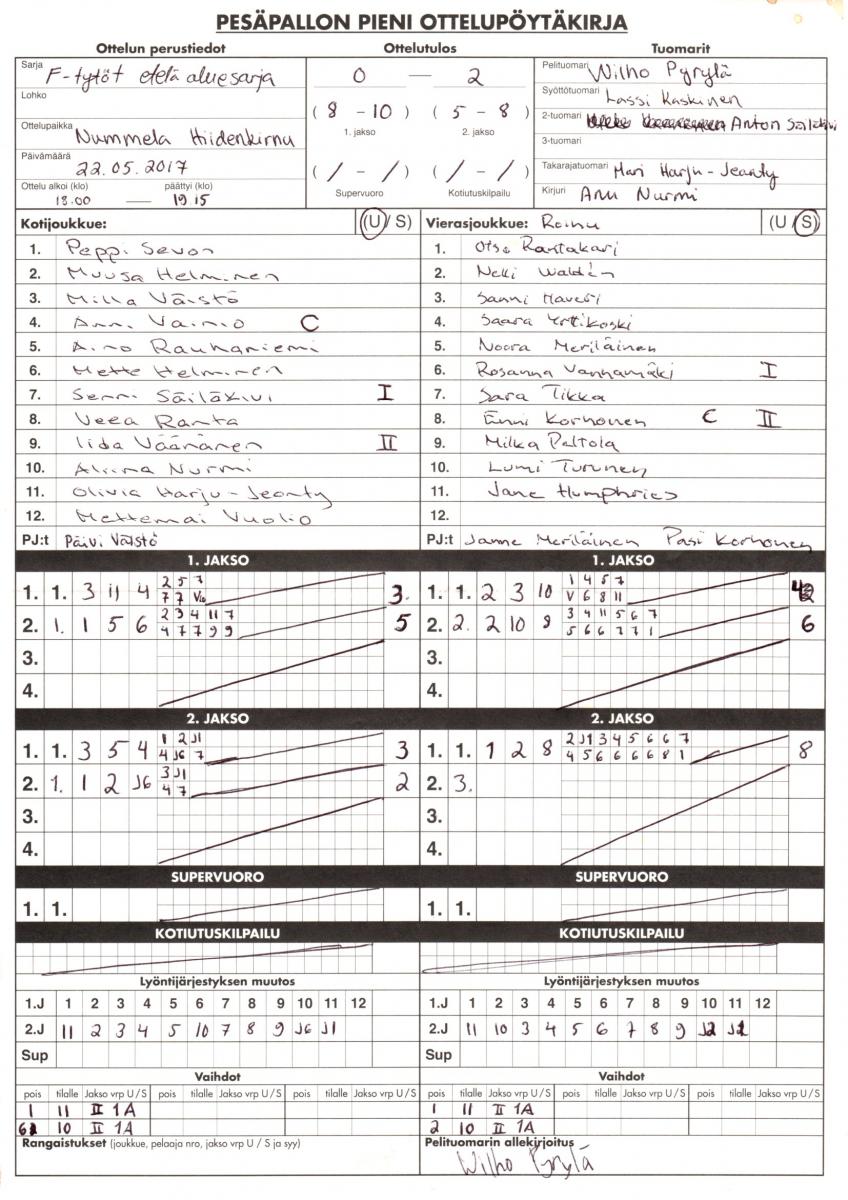 PESÄPALLON PIENI OTTELUPÖYTÄKIRJA
Ottelun perustiedot Ottelutulos Tuomarit
Sarja F-tytöt etelä aluesarja
0 — 2
Pelituomari Wilho Pyrylä
Lohko
Syöttötuomari Lassi Kaskinen
(8 - 10) (5 - 8)
1. jakso 2. jakso
2-tuomari Anton
Ottelupaikka Nummela Hiidenkirnu
3-tuomari
Päivämäärä 22.05.2017
( / - / ) ( / - / )
Supervuoro Kotiutuskilpailu
Takarajatuomari Mari Harju-Jeanty
Ottelu alkoi (klo) päättyi (klo)
18.00 — 19 15
Kirjuri Anu Nurmi
Kotijoukkue: (U / S) Vierasjoukkue: (U / S)
1. Peppi Sevon 1. Otso Rantakari
2. Muusa Helminen 2. Nelli Waldén
3. Milla Väistö 3. Sanni Haveri
4. Anni Vainio C 4. Saara Yrttikoski
5. Aino Rauhaniemi 5. Noora Meriläinen
6. Mette Helminen 6. Rosanna Vanhamäki I
7. Senni Säiläkivi I 7. Sara Tikka
8. Veea Ranta 8. Enni Korhonen C II
9. Iida Väänänen II 9. Milka Paltola
10. Alviina Nurmi 10. Lumi Turunen
11. Olivia Harju-Jeanty 11. Jane Humphries
12. Mettemai Vuolio 12.
PJ:t Päivi Väistö PJ:t Janne Meriläinen Pasi Korhonen
1. JAKSO 1. JAKSO
2 5 7 1 4 5 7
1. 1. 3 11 4 3. 1. 1. 2 3 10
7 7 V10 V 6 8 11
2 3 4 11 7 3 4 11 5 6 7
2. 1. 1 5 6 5 2. 2. 2 10 8 6
4 7 7 9 9 5 6 6 7 7 1
3. 3.
4. 4.
2. JAKSO 2. JAKSO
1 2 J1 2 J1 3 4 5 6 6 7
1. 1. 3 5 4 3 1. 1. 1 2 8 8
4 J6 7 4 5 6 6 6 6 8 1
3 J1
2. 1. 1 2 J6 2 2. 3.
4 7
3. 3.
4. 4.
SUPERVUORO SUPERVUORO
1. 1. 1. 1.
KOTIUTUSKILPAILU KOTIUTUSKILPAILU
Lyöntijärjestyksen muutos Lyöntijärjestyksen muutos
1.J 1 2 3 4 5 6 7 8 9 10 11 12 1.J 1 2 3 4 5 6 7 8 9 10 11 12
2.J 11 2 3 4 5 10 7 8 9 J6 J1 2.J 11 10 3 4 5 6 7 8 9 J2 J1
Sup Sup
Vaihdot Vaihdot
pois tilalle Jakso vrp U / S pois tilalle Jakso vrp U / S pois tilalle Jakso vrp U / S pois tilalle Jakso vrp U / S pois tilalle Jakso vrp U / S pois tilalle Jakso vrp U / S
1 11 II 1A 1 11 II 1A
6 10 II 1A 2 10 II 1A
Rangaistukset (joukkue, pelaaja nro, jakso vrp U / S ja syy) Pelituomarin allekirjoitus
Wilho Pyrylä